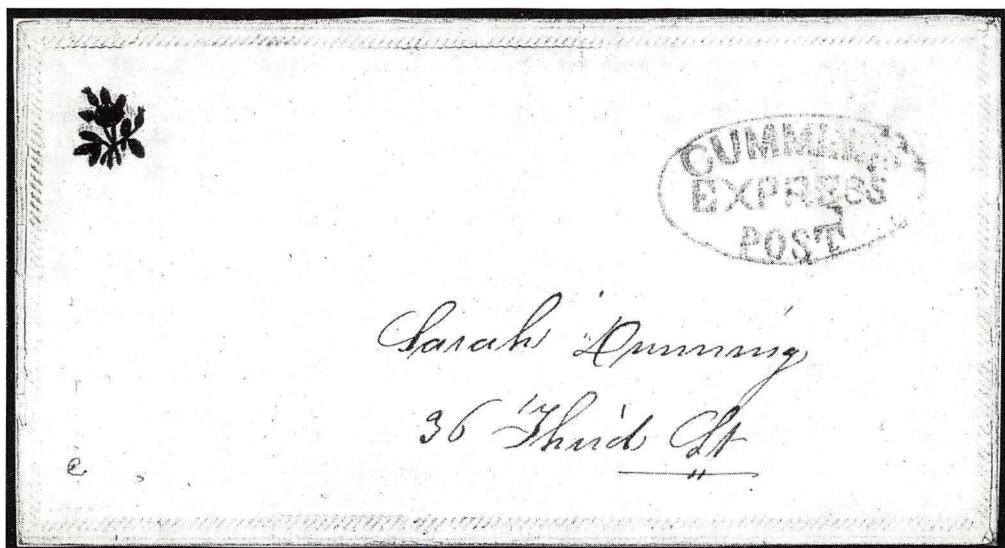 CUMMING'S
EXPRESS
POST
Sarah
36 Third St